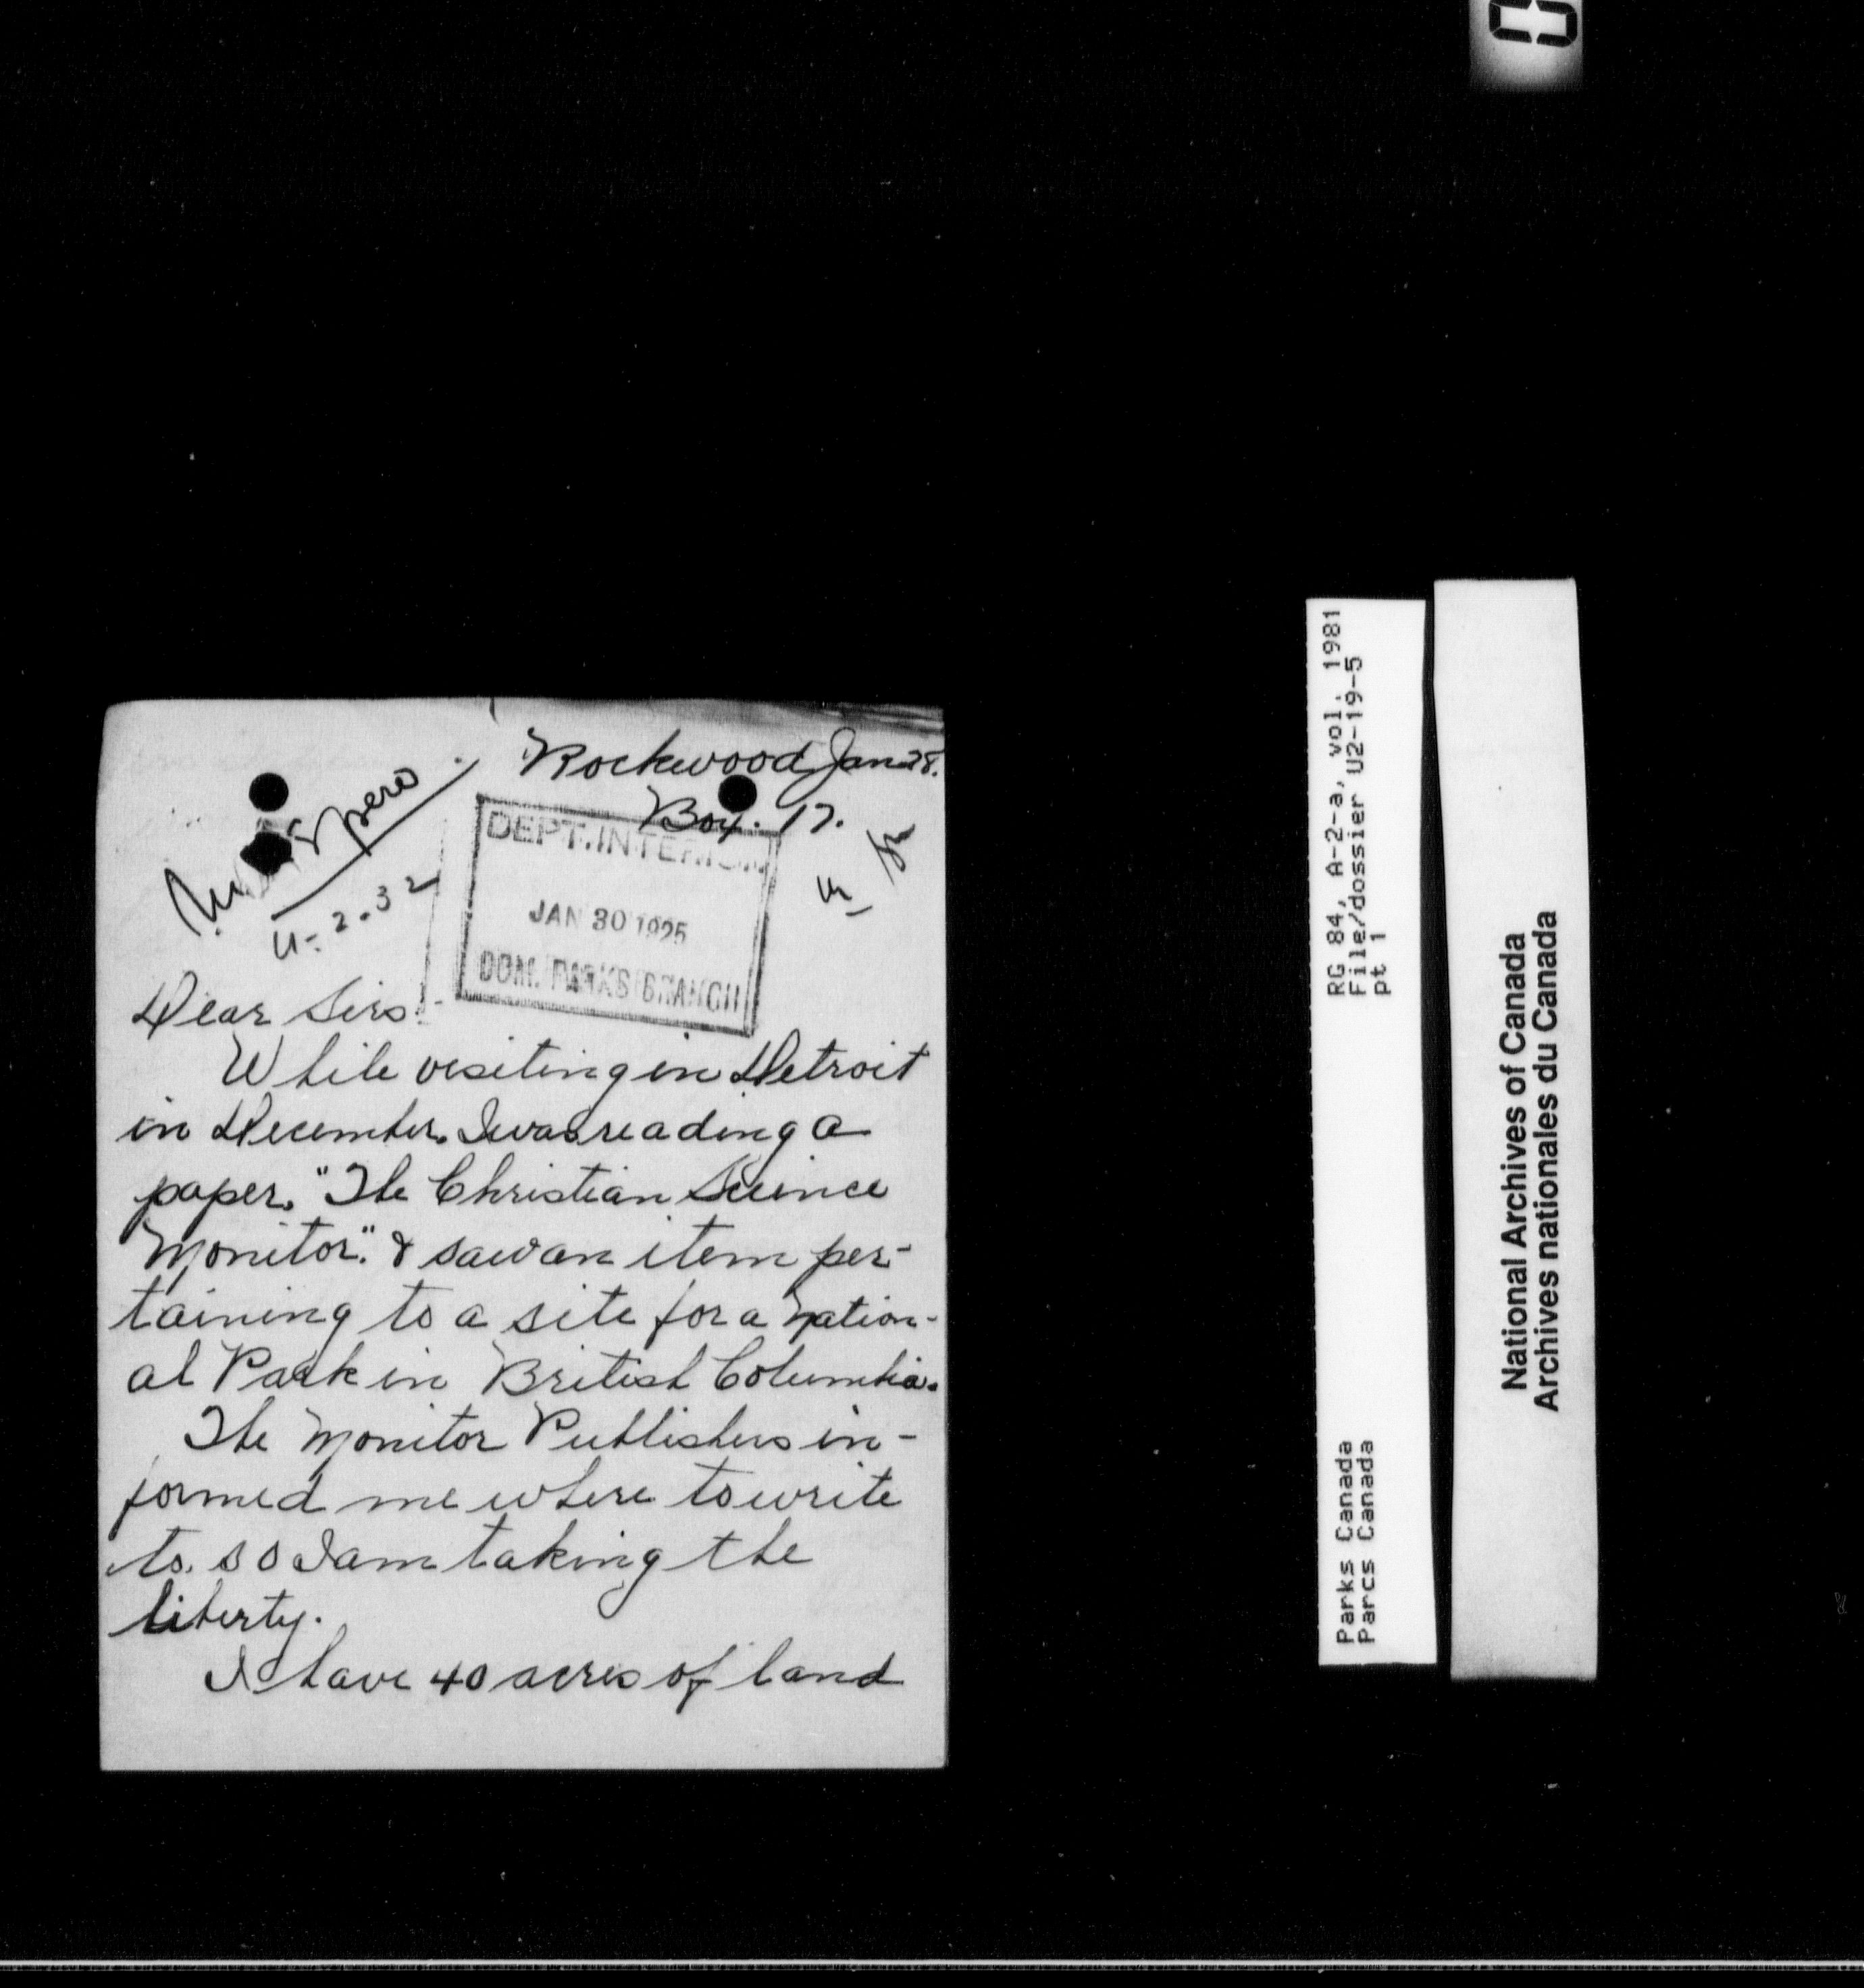 Rockwood Jan 28.
Box. 17.
U-2-32
DEPT. INTERIOR
JAN 30 1925
DOM. PARKS BRANCH
Dear Sirs:-
While visiting in Detroit
in December. I was reading a
paper. "The Christian Science
Monitor". & saw an item per-
taining to a site for a Nation-
al Park in British Columbia.
The Monitor Publishers in-
formed me where to write
to. so I am taking the
liberty.
I have 40 acres of land
RG 84, A-2-a, vol. 1981
File/dossier U2-19-5
pt 1
Parks Canada
Parcs Canada
National Archives of Canada
Archives nationales du Canada